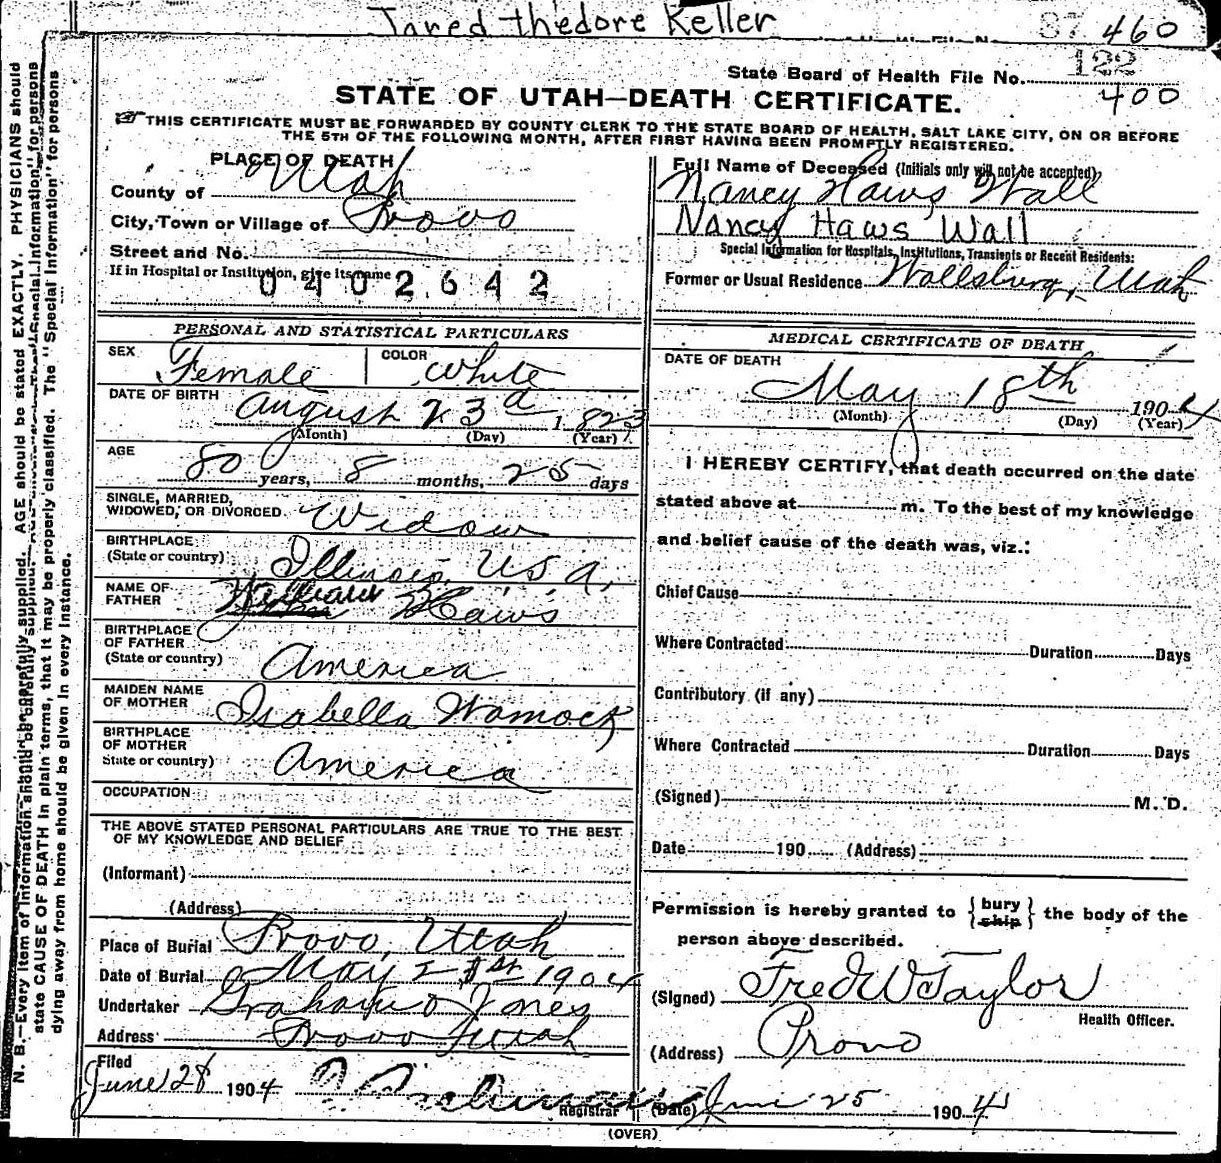 Jared thedore Keller
460
State Board of Health File No. 122
400
STATE OF UTAH—DEATH CERTIFICATE.
THIS CERTIFICATE MUST BE FORWARDED BY COUNTY CLERK TO THE STATE BOARD OF HEALTH, SALT LAKE CITY, ON OR BEFORE
THE 5TH OF THE FOLLOWING MONTH, AFTER FIRST HAVING BEEN PROMPTLY REGISTERED.
PLACE OF DEATH
County of Utah
City, Town or Village of Provo
Street and No.
If in Hospital or Institution, give its name
0402642
Full Name of Deceased (Initials only will not be accepted)
Nancy Haws Wall
Nancy Haws Wall
Special Information for Hospitals, Institutions, Transients or Recent Residents:
Former or Usual Residence Wallsburg, Utah
PERSONAL AND STATISTICAL PARTICULARS
SEX Female COLOR White
DATE OF BIRTH August 23d 1823
(Month) (Day) (Year)
AGE 80 years, 8 months, 25 days
SINGLE, MARRIED,
WIDOWED, OR DIVORCED Widow
BIRTHPLACE
(State or country) Illinois, U S A,
NAME OF
FATHER William Haws
BIRTHPLACE
OF FATHER
(State or country) America
MAIDEN NAME
OF MOTHER Isabella Womack
BIRTHPLACE
OF MOTHER
State or country) America
OCCUPATION
THE ABOVE STATED PERSONAL PARTICULARS ARE TRUE TO THE BEST
OF MY KNOWLEDGE AND BELIEF
(Informant)
(Address)
Place of Burial Provo, Utah
Date of Burial May 21st 1904
Undertaker Graham & Jones
Address Provo Utah
Filed
June 28 1904
Registrar
MEDICAL CERTIFICATE OF DEATH
DATE OF DEATH
May 18th 1904
(Month) (Day) (Year)
I HEREBY CERTIFY, that death occurred on the date
stated above at m. To the best of my knowledge
and belief cause of the death was, viz.:
Chief Cause
Where Contracted Duration Days
Contributory (if any)
Where Contracted Duration Days
(Signed) M. D.
Date 190 (Address)
Permission is hereby granted to {bury ship} the body of the
person above described.
(Signed) Fred W Taylor
Health Officer.
(Address) Provo
(Date) June 25 1904
(OVER)
N. B.—Every item of information should be carefully supplied. AGE should be stated EXACTLY. PHYSICIANS should
state CAUSE OF DEATH in plain terms, that it may be properly classified. The "Special Information" for persons
dying away from home should be given in every instance.